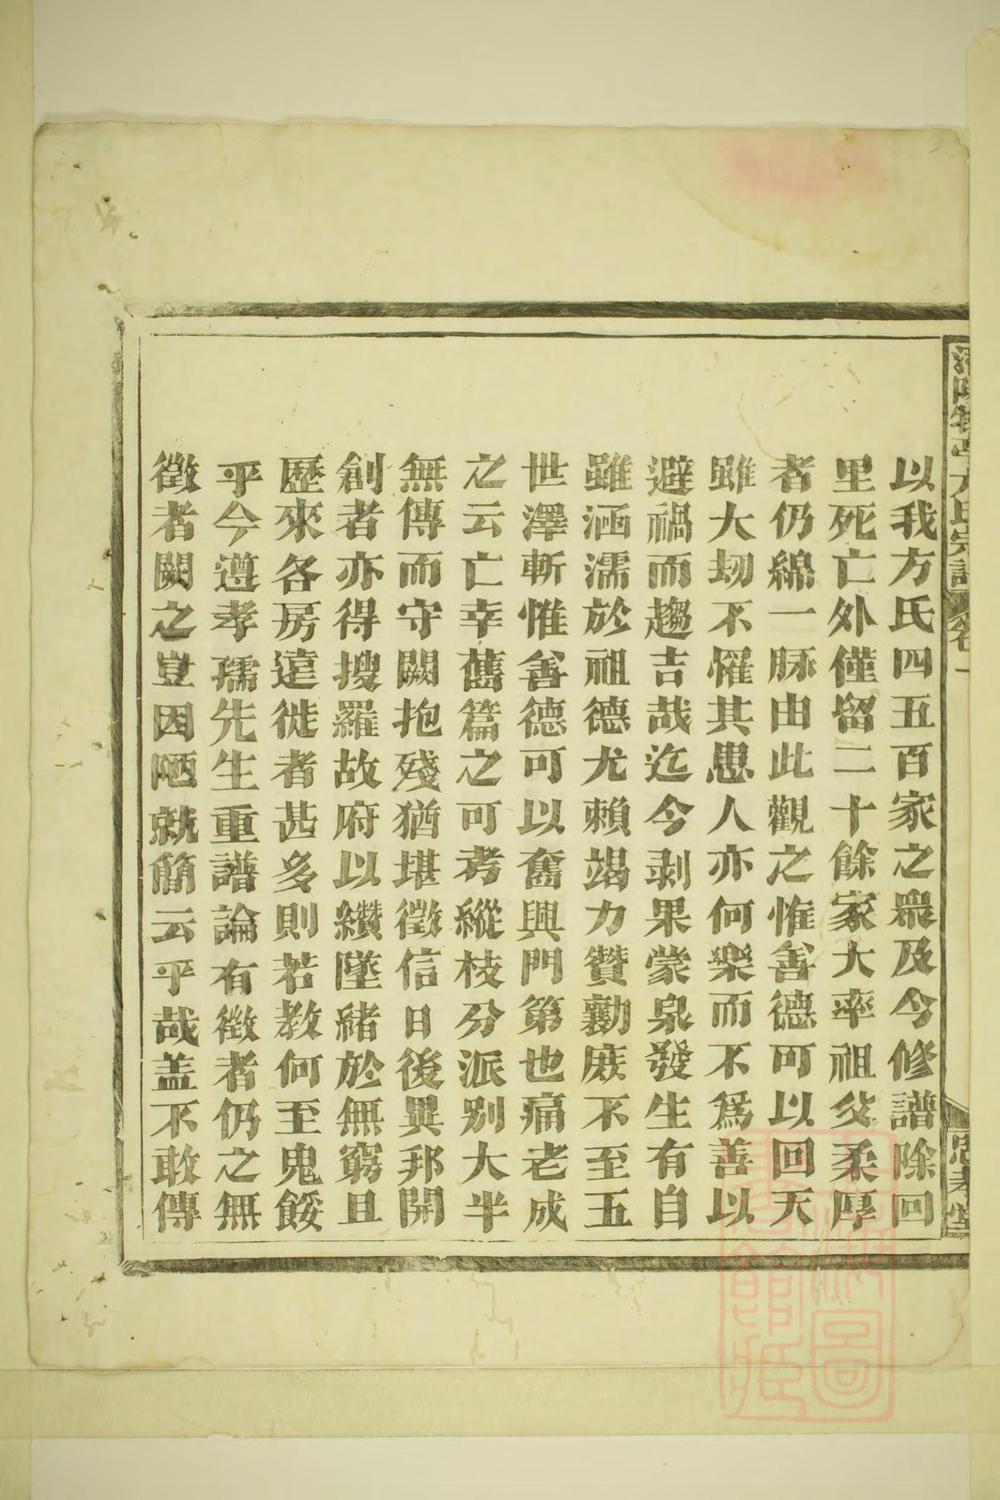 以我方氏四五百家之眾及今修譜除回
里死亡外僅留二十餘家大率祖父柔厚
者仍綿一脈由此觀之惟善德可以回天
雖大刼不罹其患人亦何樂而不爲善以
避禍而趨吉哉迄今剥果蒙泉發生有自
雖涵濡於祖德尤賴竭力贊勷庶不至五
世澤斬惟善德可以奮興門第也痛老成
之云亡幸舊篇之可考縱枝分派别大半
無傳而守闕抱殘猶堪徵信日後異邦開
創者亦得搜羅故府以纘墜緒於無窮且
歷來各房遠徙者甚多則若敖何至鬼餒
乎今遵孝孺先生重譜論有徵者仍之無
徵者闕之豈因陋就簡云乎哉盖不敢傳
方氏宗譜 卷一